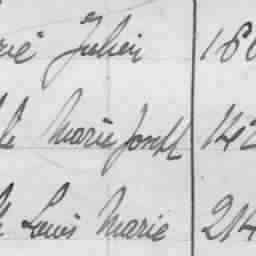 Julien 180
Marie Joseph 142
Louis Marie 214